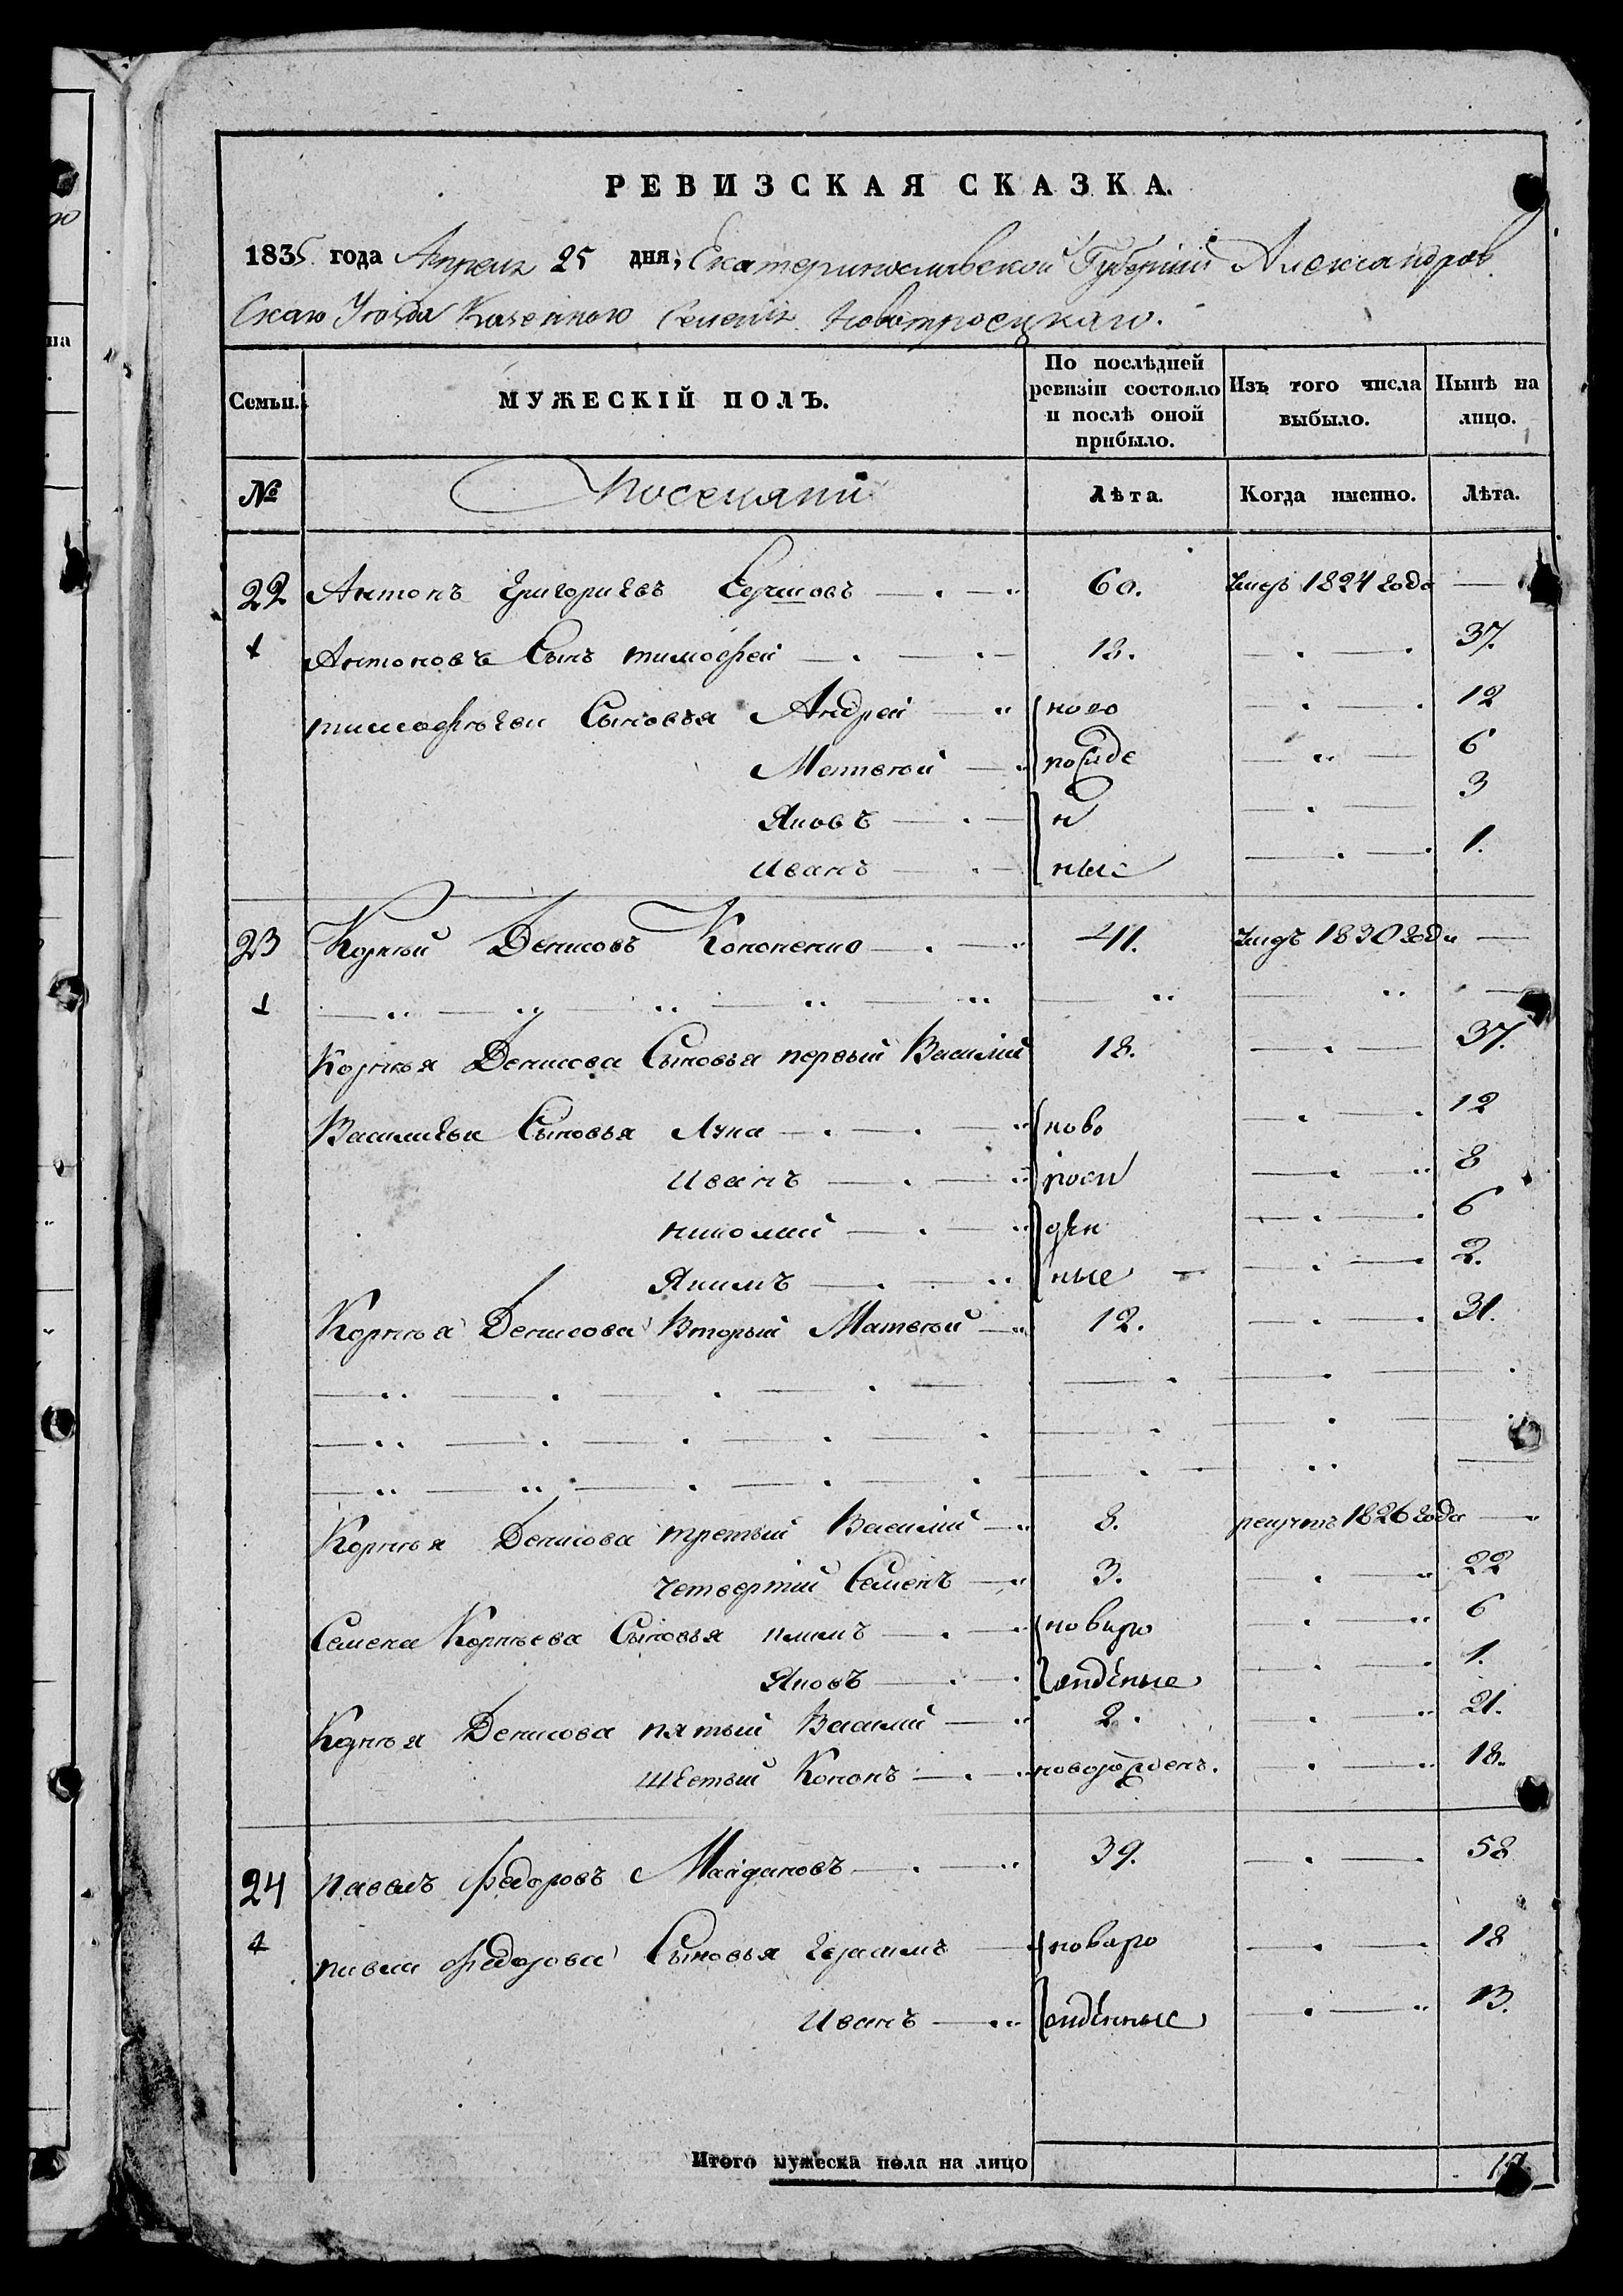 РЕВИЗСКАЯ СКАЗКА.
1835 года Апреля 25 дня, Екатеринославской Губернии Александров
Скаго Уезда Казенного Селения Новотроецкаго.
Семьи. МУЖЕСКІЙ ПОЛЪ. По послѣдней ревизіи состояло и послѣ оной прибыло. Изъ того числа выбыло. Нынѣ на лицо.
№ Поселяни Лѣта. Когда именно. Лѣта.
22 Антонъ Григориевъ 60. Умеръ 1824 года
1 Антоновъ Сынъ тимофей 18. 37.
тимофѣеви Сыновья Андрей ново 12
Матвѣй рожде 6
Яковъ н 3
Иванъ ные 1.
23 Корнѣй Денисовъ Кононенко 41. Умеръ 1830 года
1
Корнѣя Денисова Сыновья первый Василій 18. 37.
Василиеви Сыновья Лука ново 12
Иванъ рож 8
николай ден 6
Якимъ ные 2.
Корнѣя Денисова Вторый Матвѣй 12. 31.
Корнѣя Денисова третый Василій 8. рекрутъ 1826 года
четвертій Семенъ 3. 22
Семена Корнѣева Сыновья новоро 6
Яковъ жденые 1.
Корнѣя Денисова пятый Василій 2. 21.
шестый Кононъ новорожденъ. 18.
24 павелъ федоровъ Майдановъ 39. 58
1 павла федорова Сыновья Герасимъ новоро 18
Иванъ жденные 13.
Итого мужеска пола на лицо